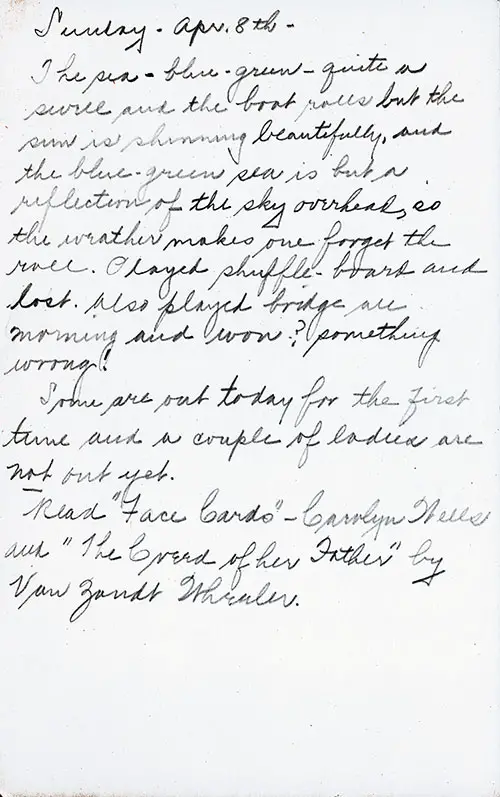 Sunday - Apr. 8th -
The sea - blue-green - quite a
swell and the boat rolls but the
sun is shinning beautifully, and
the blue-green sea is but a
reflection of the sky overhead, so
the weather makes one forget the
roll. Played shuffle-board and
lost. Also played bridge all
morning and won? something
wrong!
Some are out today for the first
time and a couple of ladies are
not out yet.
Read "Face Cards" - Carolyn Wells
and "The Creed of her Father" by
Van Zandt Wheeler.